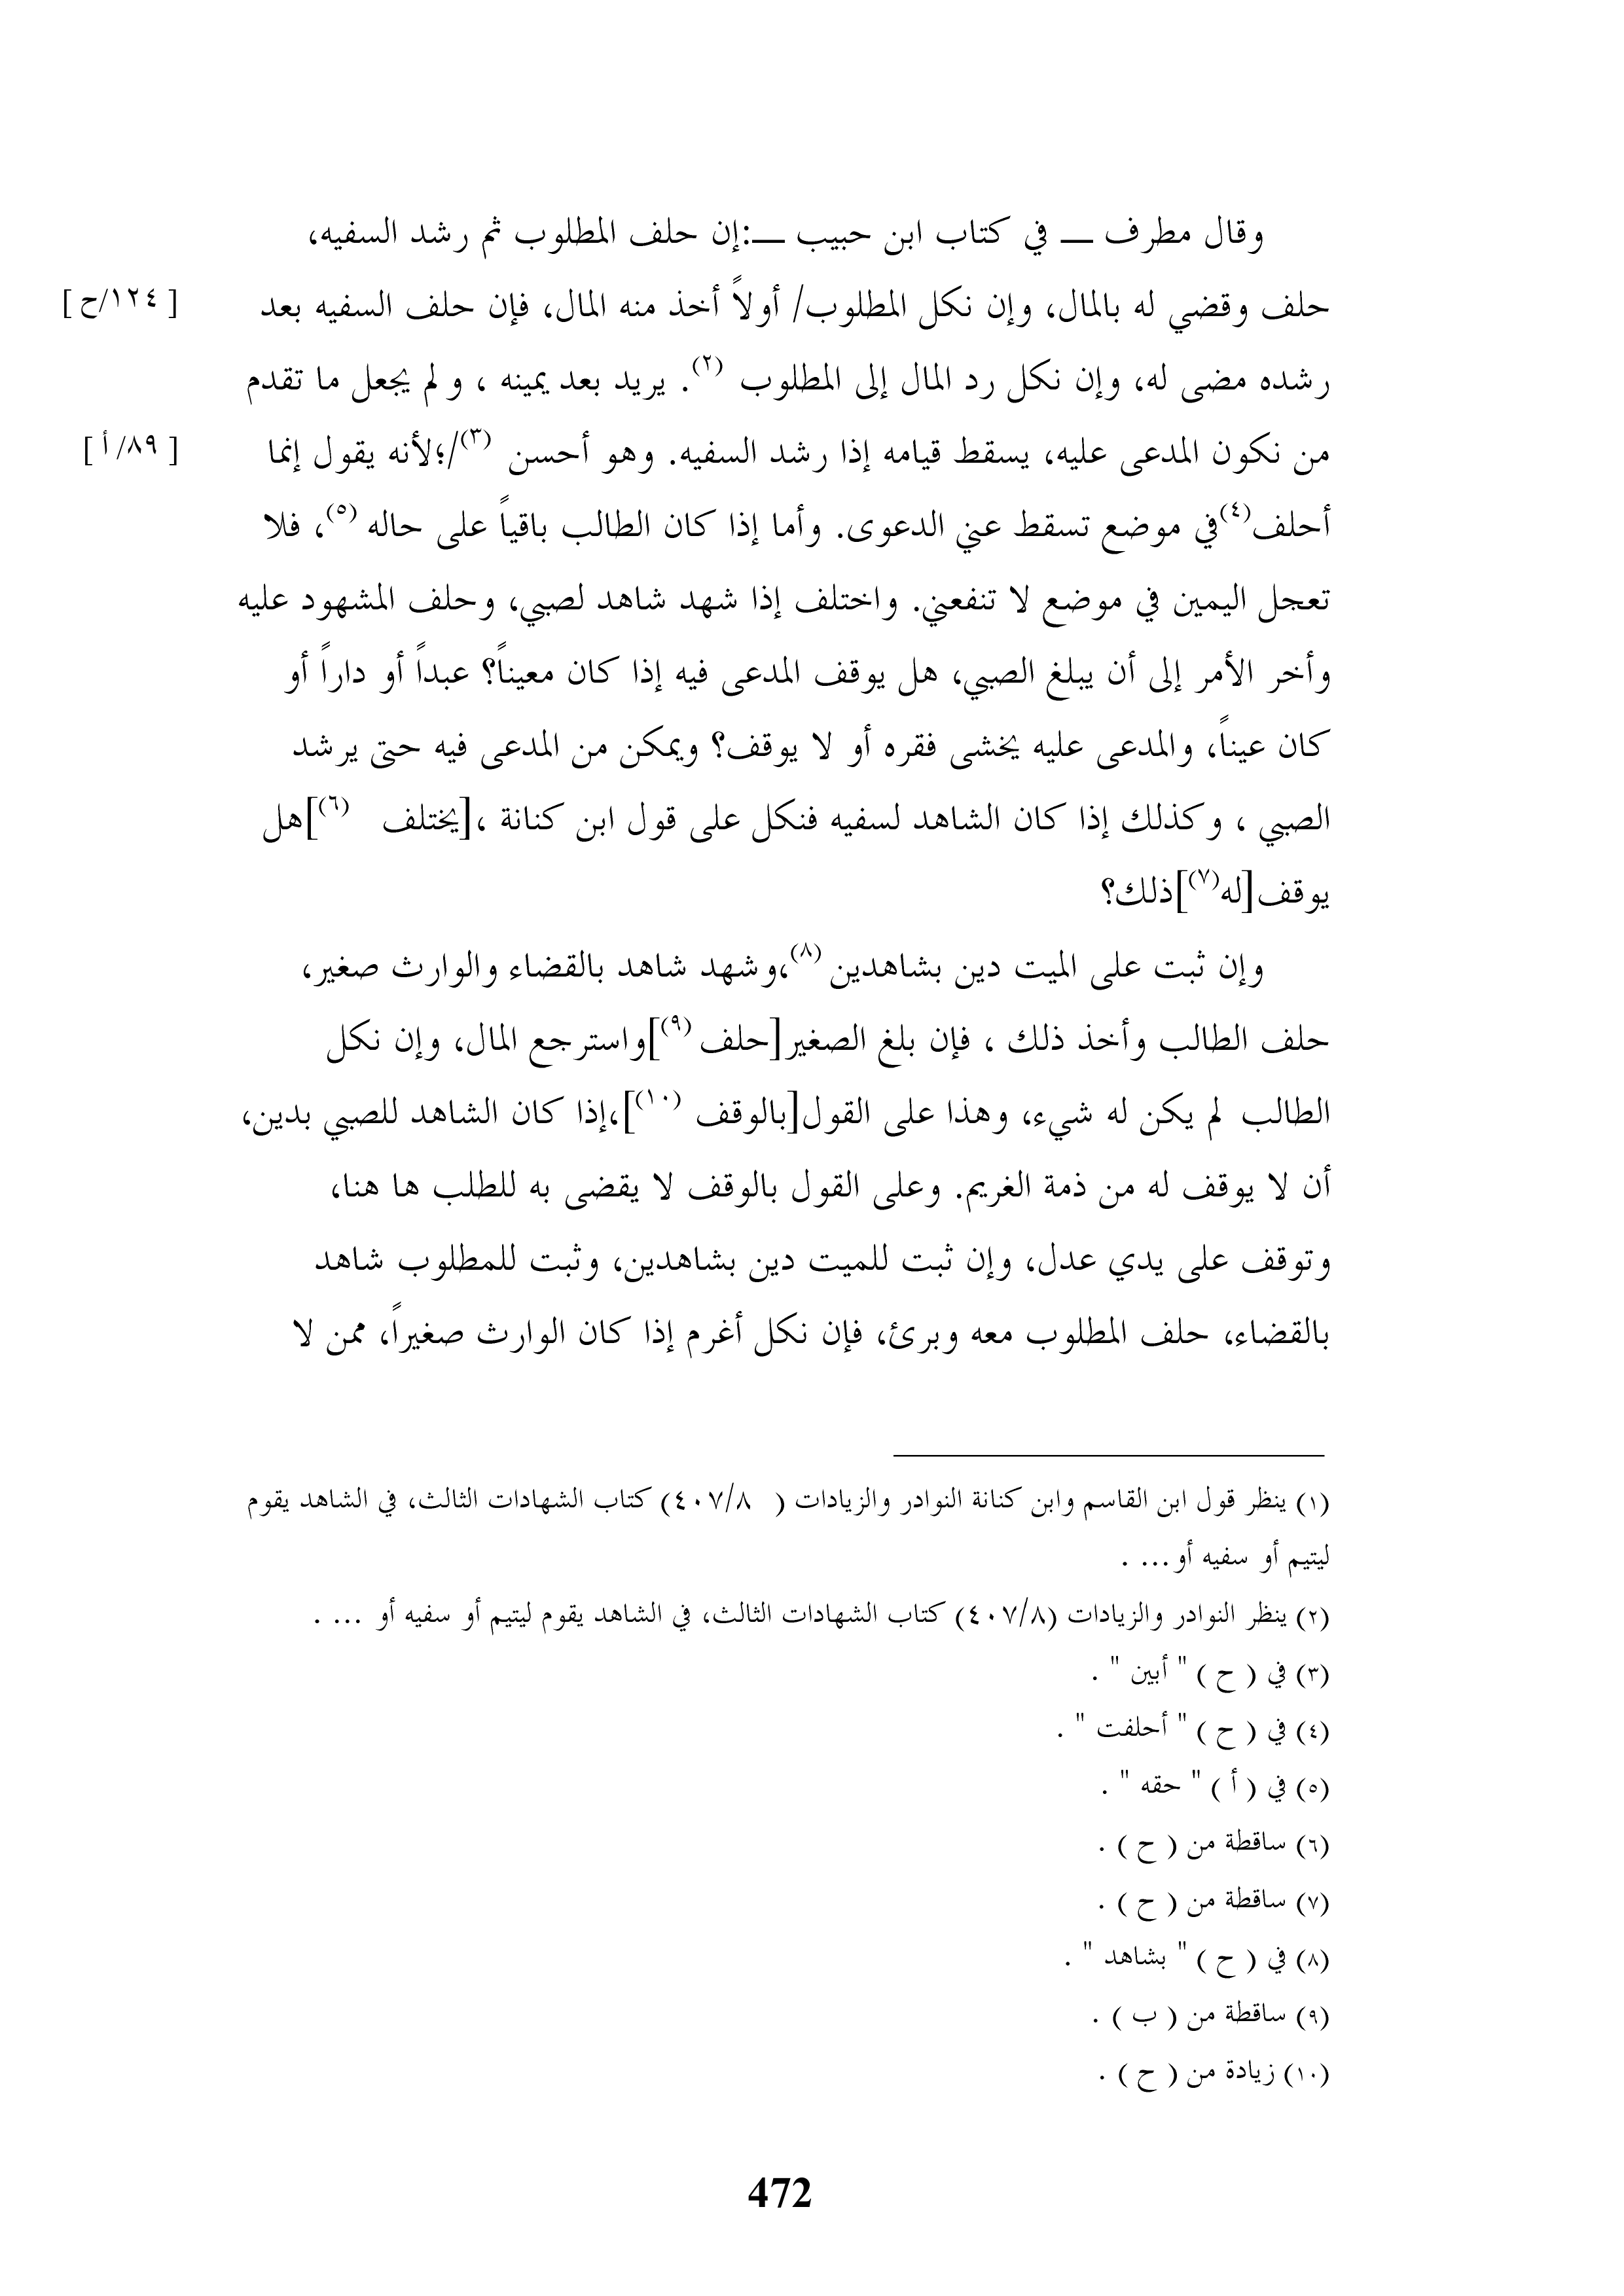 وقال مطرف ـــ في كتاب ابن حبيب ـــ:إن حلف المطلوب ثم رشد السفيه،
حلف وقضي له بالمال، وإن نكل المطلوب/ أولاً أخذ منه المال، فإن حلف السفيه بعد
[ ١٢٤/ح ]
رشده مضى له، وإن نكل رد المال إلى المطلوب (٢). يريد بعد يمينه ، ولم يجعل ما تقدم
من نكون المدعى عليه، يسقط قيامه إذا رشد السفيه. وهو أحسن (٣)/؛لأنه يقول إنما
[ ٨٩/أ ]
أحلف(٤)في موضع تسقط عني الدعوى. وأما إذا كان الطالب باقياً على حاله (٥)، فلا
تعجل اليمين في موضع لا تنفعني. واختلف إذا شهد شاهد لصبي، وحلف المشهود عليه
وأخر الأمر إلى أن يبلغ الصبي، هل يوقف المدعى فيه إذا كان معيناً؟ عبداً أو داراً أو
كان عيناً، والمدعى عليه يخشى فقره أو لا يوقف؟ ويمكن من المدعى فيه حتى يرشد
الصبي ، وكذلك إذا كان الشاهد لسفيه فنكل على قول ابن كنانة ،[يختلف (٦)]هل
يوقف[له(٧)]ذلك؟
وإن ثبت على الميت دين بشاهدين (٨)،وشهد شاهد بالقضاء والوارث صغير،
حلف الطالب وأخذ ذلك ، فإن بلغ الصغير[حلف (٩)]واسترجع المال، وإن نكل
الطالب لم يكن له شيء، وهذا على القول[بالوقف (١٠)]،إذا كان الشاهد للصبي بدين،
أن لا يوقف له من ذمة الغريم. وعلى القول بالوقف لا يقضى به للطلب ها هنا،
وتوقف على يدي عدل، وإن ثبت للميت دين بشاهدين، وثبت للمطلوب شاهد
بالقضاء، حلف المطلوب معه وبرئ، فإن نكل أغرم إذا كان الوارث صغيراً، ممن لا
(١) ينظر قول ابن القاسم وابن كنانة النوادر والزيادات ( ٤٠٧/٨) كتاب الشهادات الثالث، في الشاهد يقوم
ليتيم أو سفيه أو... .
(٢) ينظر النوادر والزيادات (٤٠٧/٨) كتاب الشهادات الثالث، في الشاهد يقوم ليتيم أو سفيه أو ... .
(٣) في ( ح ) " أبين " .
(٤) في ( ح ) " أحلفت " .
(٥) في ( أ ) " حقه " .
(٦) ساقطة من ( ح ) .
(٧) ساقطة من ( ح ) .
(٨) في ( ح ) " بشاهد " .
(٩) ساقطة من ( ب ) .
(١٠) زيادة من ( ح ) .
472